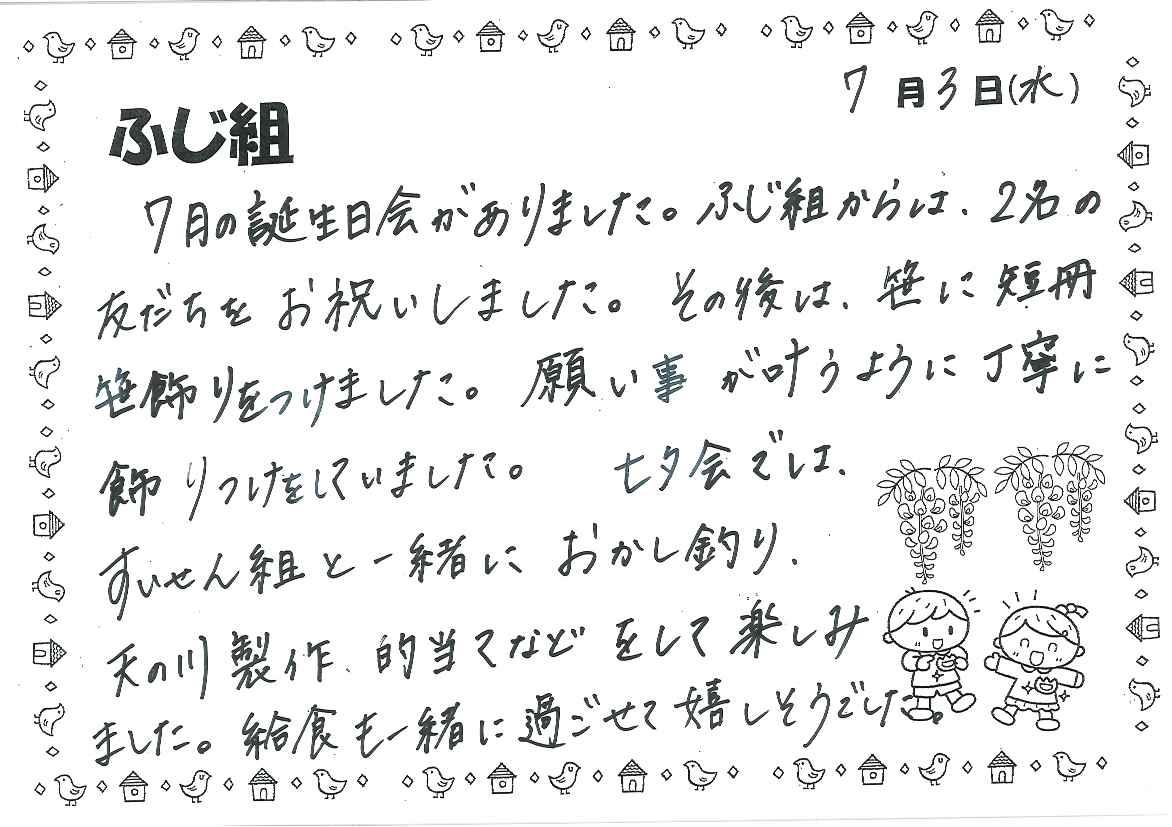 7月3日(水)
ふじ組
7月の誕生日会がありました。ふじ組からは、2名の
友だちをお祝いしました。その後は、笹に短冊
笹飾りをつけました。願い事が叶うように丁寧に
飾りつけをしていました。 七夕会では、
すいせん組と一緒におかし釣り、
天の川製作、的当てなどをして楽しみ
ました。給食も一緒に過ごせて嬉しそうでした。